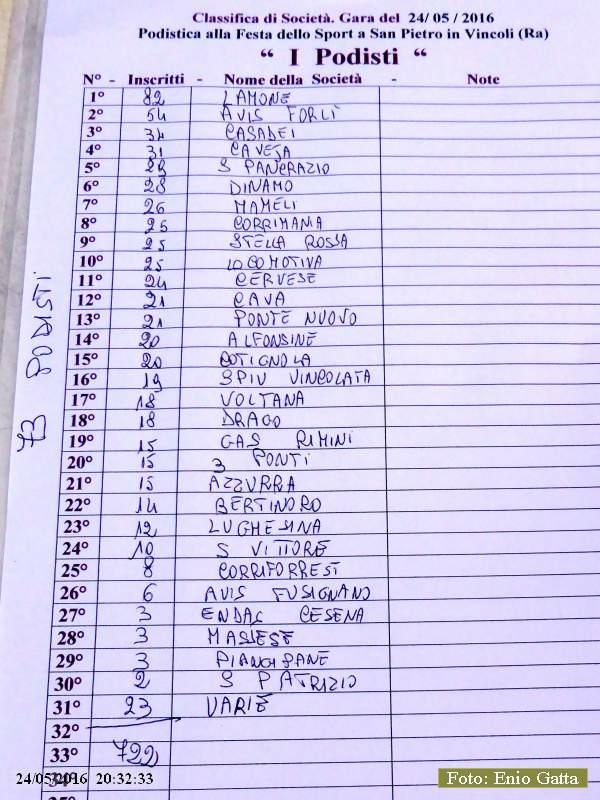 Classifica di Società. Gara del 24/ 05 / 2016
Podistica alla Festa dello Sport a San Pietro in Vincoli (Ra)
“ I Podisti “
N° - Inscritti - Nome della Società - Note
1° 82 LAMONE
2° 54 AVIS FORLÌ
3° 34 CASADEI
4° 31 CAVEJA
5° 29 S PANCRAZIO
6° 28 DINAMO
7° 26 MAMELI
8° 25 CORRIMANIA
9° 25 STELLA ROSSA
10° 25 LOCOMOTIVA
11° 24 CERVESE
12° 21 CAVA
13° 21 PONTE NUOVO
14° 20 ALFONSINE
15° 20 COTIGNOLA
16° 19 SPIV VINCOLATA
17° 18 VOLTANA
18° 18 DRAGO
19° 15 GAS RIMINI
20° 15 3 PONTI
21° 15 AZZURRA
22° 14 BERTINORO
23° 12 LUGHESINA
24° 10 S VITTORE
25° 8 CORRIFORREST
26° 6 AVIS FUSIGNANO
27° 3 ENDAS CESENA
28° 3 MASSESE
29° 3 PIANGIPANE
30° 2 S PATRIZIO
31° 23 VARIE
32°
33° 722
34°
73 PODISTI
24/05/2016 20:32:33
Foto: Enio Gatta